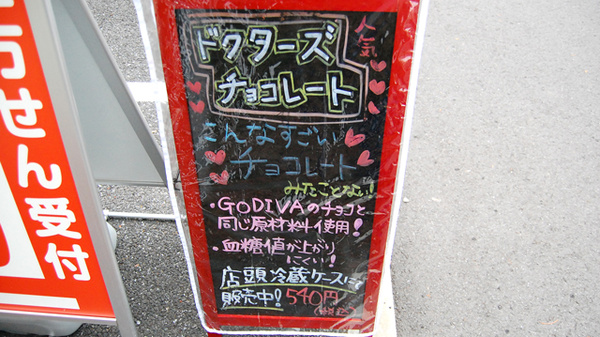 人気
ドクターズ
チョコレート
こんなすごい
チョコレート
みたことない!
・GODIVAのチョコと
同じ原材料使用!
・血糖値が上がり
にくい!
店頭冷蔵ケースにて
販売中!540円
せん受付